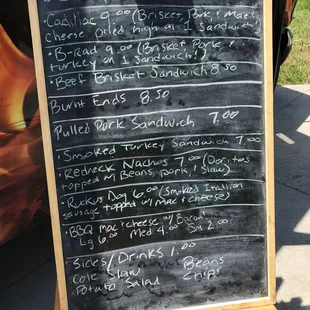 •Cadillac 9.00 (Brisket, Pork, & Mac &
cheese piled high on 1 Sandwich!)
•B-Rad 9.00 (Brisket, Pork, &
turkey on 1 Sandwich!)
•Beef Brisket Sandwich 8.50
Burnt Ends 8.50
Pulled Pork Sandwich 7.00
•Smoked Turkey Sandwich 7.00
•Redneck Nachos 7.00 (Doritos
topped w/ Beans, pork, & Slaw)
•Ruckus Dog 6.00 (Smoked Itallian
sausage topped w/ Mac & cheese)
•BBQ Mac & cheese w/ Bacon
Lg 6.00 Med 4.00 Sm 2.00
Sides/Drinks 1.00
Cole Slaw Beans
•Potato Salad Chips